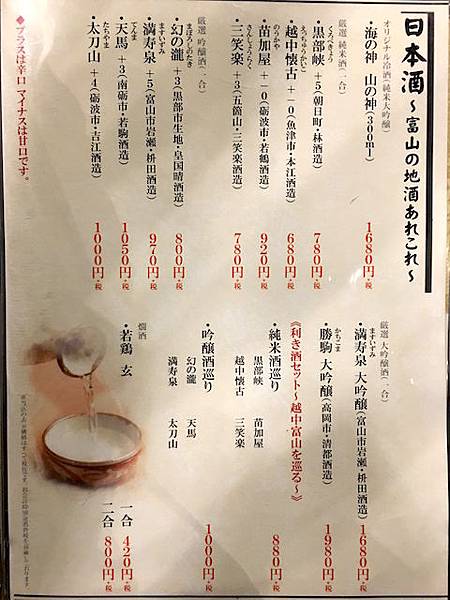 日本酒～富山の地酒あれこれ～
オリジナル冷酒(純米大吟醸)
・海の神 山の神(300ml) 1680円+税
厳選 純米酒(一合)
くろべきょう
・黒部峡 +5(朝日町・林酒造) 780円+税
えっちゅうかいこ
・越中懐古 +-0(魚津市・本江酒造) 680円+税
のうかや
・苗加屋 +-0(砺波市・若鶴酒造) 920円+税
さんしょうらく
・三笑楽 +3(五箇山・三笑楽酒造) 780円+税
厳選 吟醸酒(一合)
まぼろしのたき
・幻の瀧 +3(黒部市生地・皇国晴酒造) 800円+税
ますいずみ
・満寿泉 +5(富山市岩瀬・枡田酒造) 970円+税
てんま
・天馬 +3(南砺市・若駒酒造) 1050円+税
たちやま
・太刀山 +4(砺波市・吉江酒造) 1000円+税
◆プラスは辛口 マイナスは甘口です。
厳選 大吟醸酒(一合)
ますいずみ
・満寿泉 大吟醸(富山市岩瀬・枡田酒造) 1680円+税
かちこま
・勝駒 大吟醸(高岡市・清都酒造) 1980円+税
《利き酒セット～越中富山を巡る～》
・純米酒巡り 880円+税
黒部峡 苗加屋
越中懐古 三笑楽
・吟醸酒巡り 1000円+税
幻の瀧 天馬
満寿泉 太刀山
燗酒
・若鶏 玄 一合 420円+税
二合 800円+税